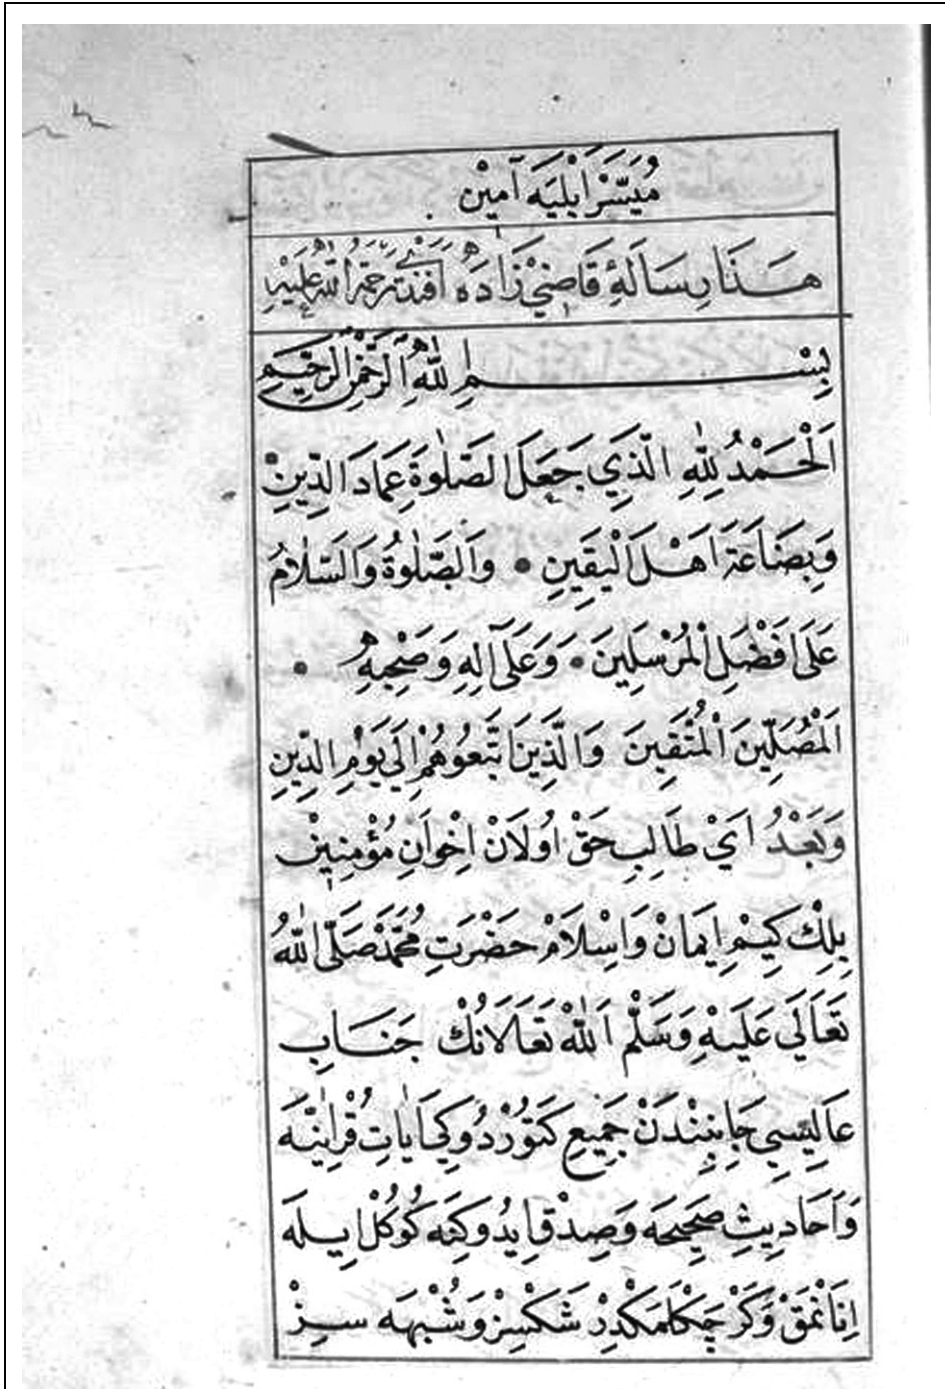 مُيَسَّرْ اَيْلَيَه آمِيْن
هَذَا رِسَالَةُ قَاضِيْ زَادَه اَفَنْدِي رَحْمَةُ اللّٰهِ عَلَيْهِ
بِسْمِ اللّٰهِ الرَّحْمٰنِ الرَّحِيمِ
اَلْحَمْدُ لِلّٰهِ الَّذِي جَعَلَ الصَّلٰوةَ عِمَادَ الدِّينِ
وَبِضَاعَةَ اَهْلَ الْيَقِينِ • وَالصَّلٰوةُ وَالسَّلَامُ
عَلَى اَفْضَلِ الْمُرْسَلِينَ • وَعَلَى آلِهِ وَصَحْبِهِ •
الْمُصَلِّينَ الْمُتَّقِينَ وَالَّذِينَ اتَّبَعُوهُمْ اِلَى يَوْمِ الدِّينِ
وَبَعْدُ اَيْ طَالِبِ حَقْ اُولَانْ اِخْوَانِ مُؤْمِنِينْ
بِلِكْ كِيمْ اِيمَانْ وَاِسْلَامْ حَضْرَتِ مُحَمَّدْ صَلَّى اللّٰهُ
تَعَالَى عَلَيْهِ وَسَلَّمْ اَللّٰهْ تَعَالَانُكْ جَنَابِ
عَالِيسِي جَانِبِنْدَنْ جَمِيعِ كَتُورْدُوكِي آيَاتِ قُرْاٰنِيَّه
وَاَحَادِيثِ صَحِيحَه وَصِدْقِ اِيدُوكِنَه كُوكُلْ اِيلَه
اِنَانْمَقْ وَكَرْچَكْلَمَكْدِرْ شَكْسِزْ وَشُبْهَه سِزْ